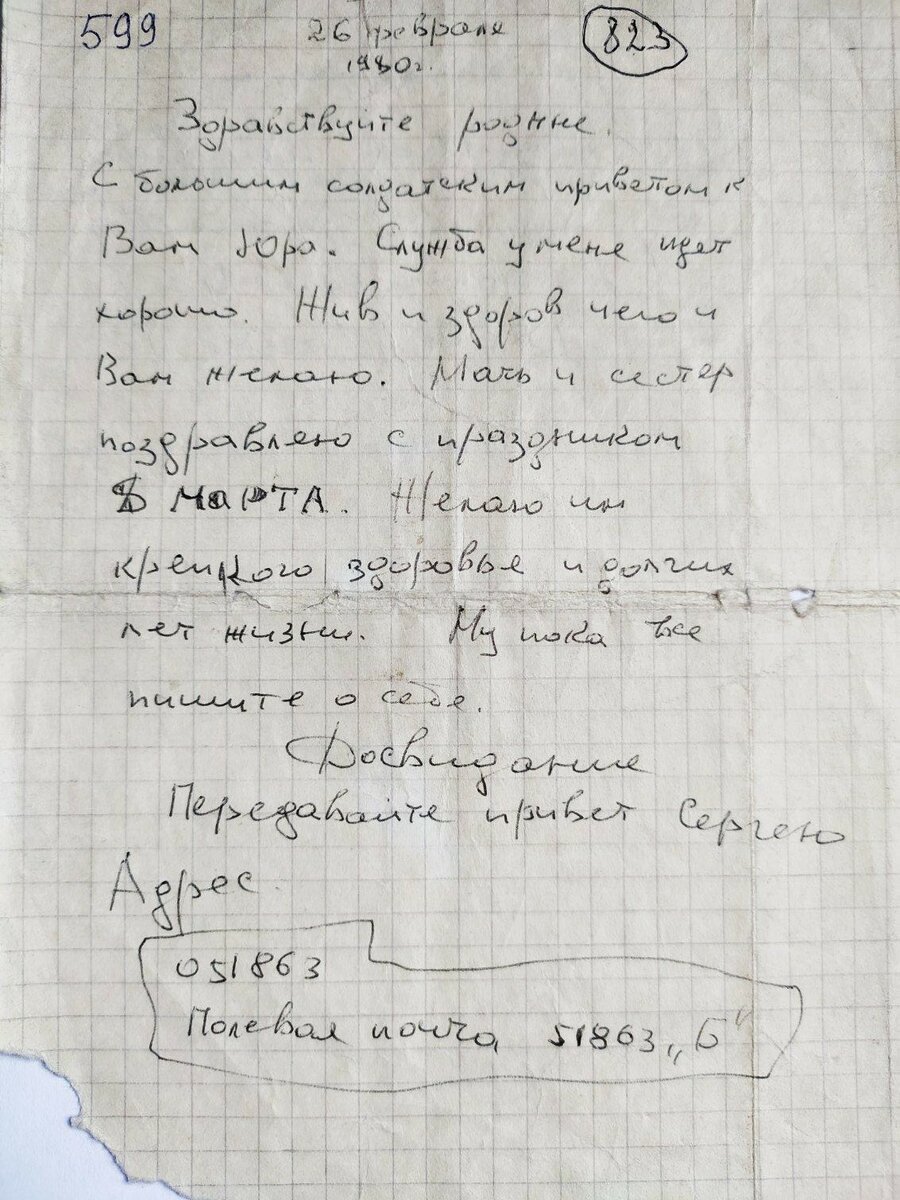 599 26 февраля 823
1980г.
Здравствуйте родные.
С большим солдатским приветом к
Вам Юра. Служба у меня идет
хорошо. Жив и здоров чего и
Вам желаю. Мать и сестер
поздравляю с праздником
8 МАРТА. Желаю им
крепкого здоровья и долгих
лет жизни. Ну пока все
пишите о себе.
Досвидание
Передавайте привет Сергею
Адрес.
051863
Полевая почта 51863 „Б"